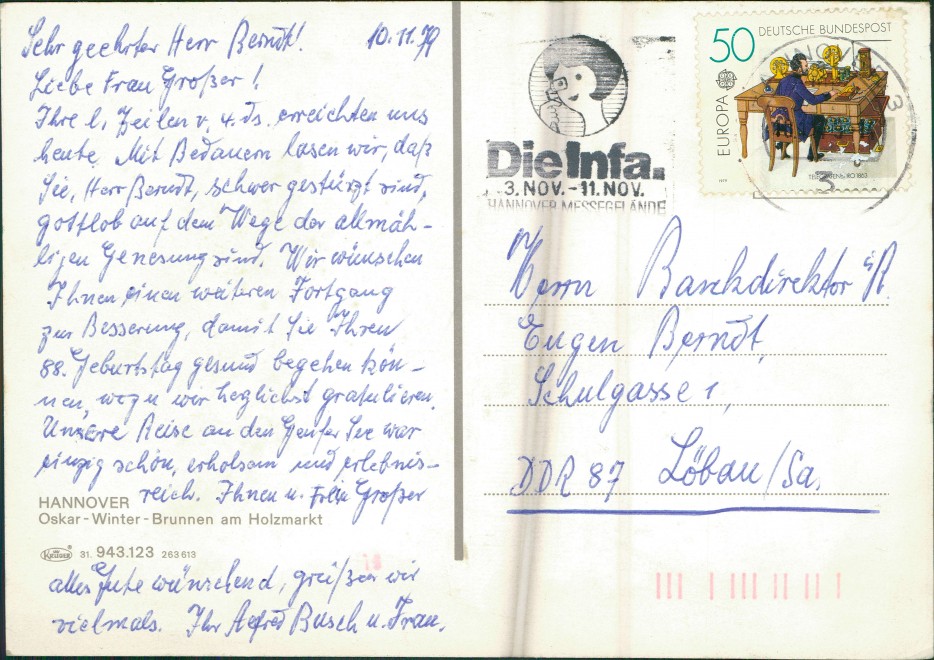 Sehr geehrter Herr Berndt! 10.11.79
Liebe Frau Großer!
Ihre l. Zeilen v. 4. ds. erreichten uns
heute. Mit Bedauern lasen wir, daß
Sie, Herr Berndt, schwer gestürzt sind,
gottlob auf dem Wege der allmäh-
ligen Genesung sind. Wir wünschen
Ihnen einen weiteren Fortgang
zur Besserung, damit Sie Ihren
88. Geburtstag gesund begehen kön-
nen, wozu wir herzlichst gratulieren.
Unsere Reise an den Genfer See war
einzig schön, erholsam und erlebnis-
reich. Ihnen u. Frau Großer
HANNOVER
Oskar-Winter-Brunnen am Holzmarkt
KRÜGER 31. 943.123 263613
alles Gute wünschend, grüßen wir
vielmals. Ihr Alfred Busch u. Frau.
Die Infa.
3. NOV. - 11. NOV.
HANNOVER MESSEGELÄNDE
50 DEUTSCHE BUNDESPOST
EUROPA
1979
HANNOVER
3
3
Herrn Bankdirektor i/R.
Eugen Berndt,
Schulgasse 1,
DDR 87 Löbau/Sa.